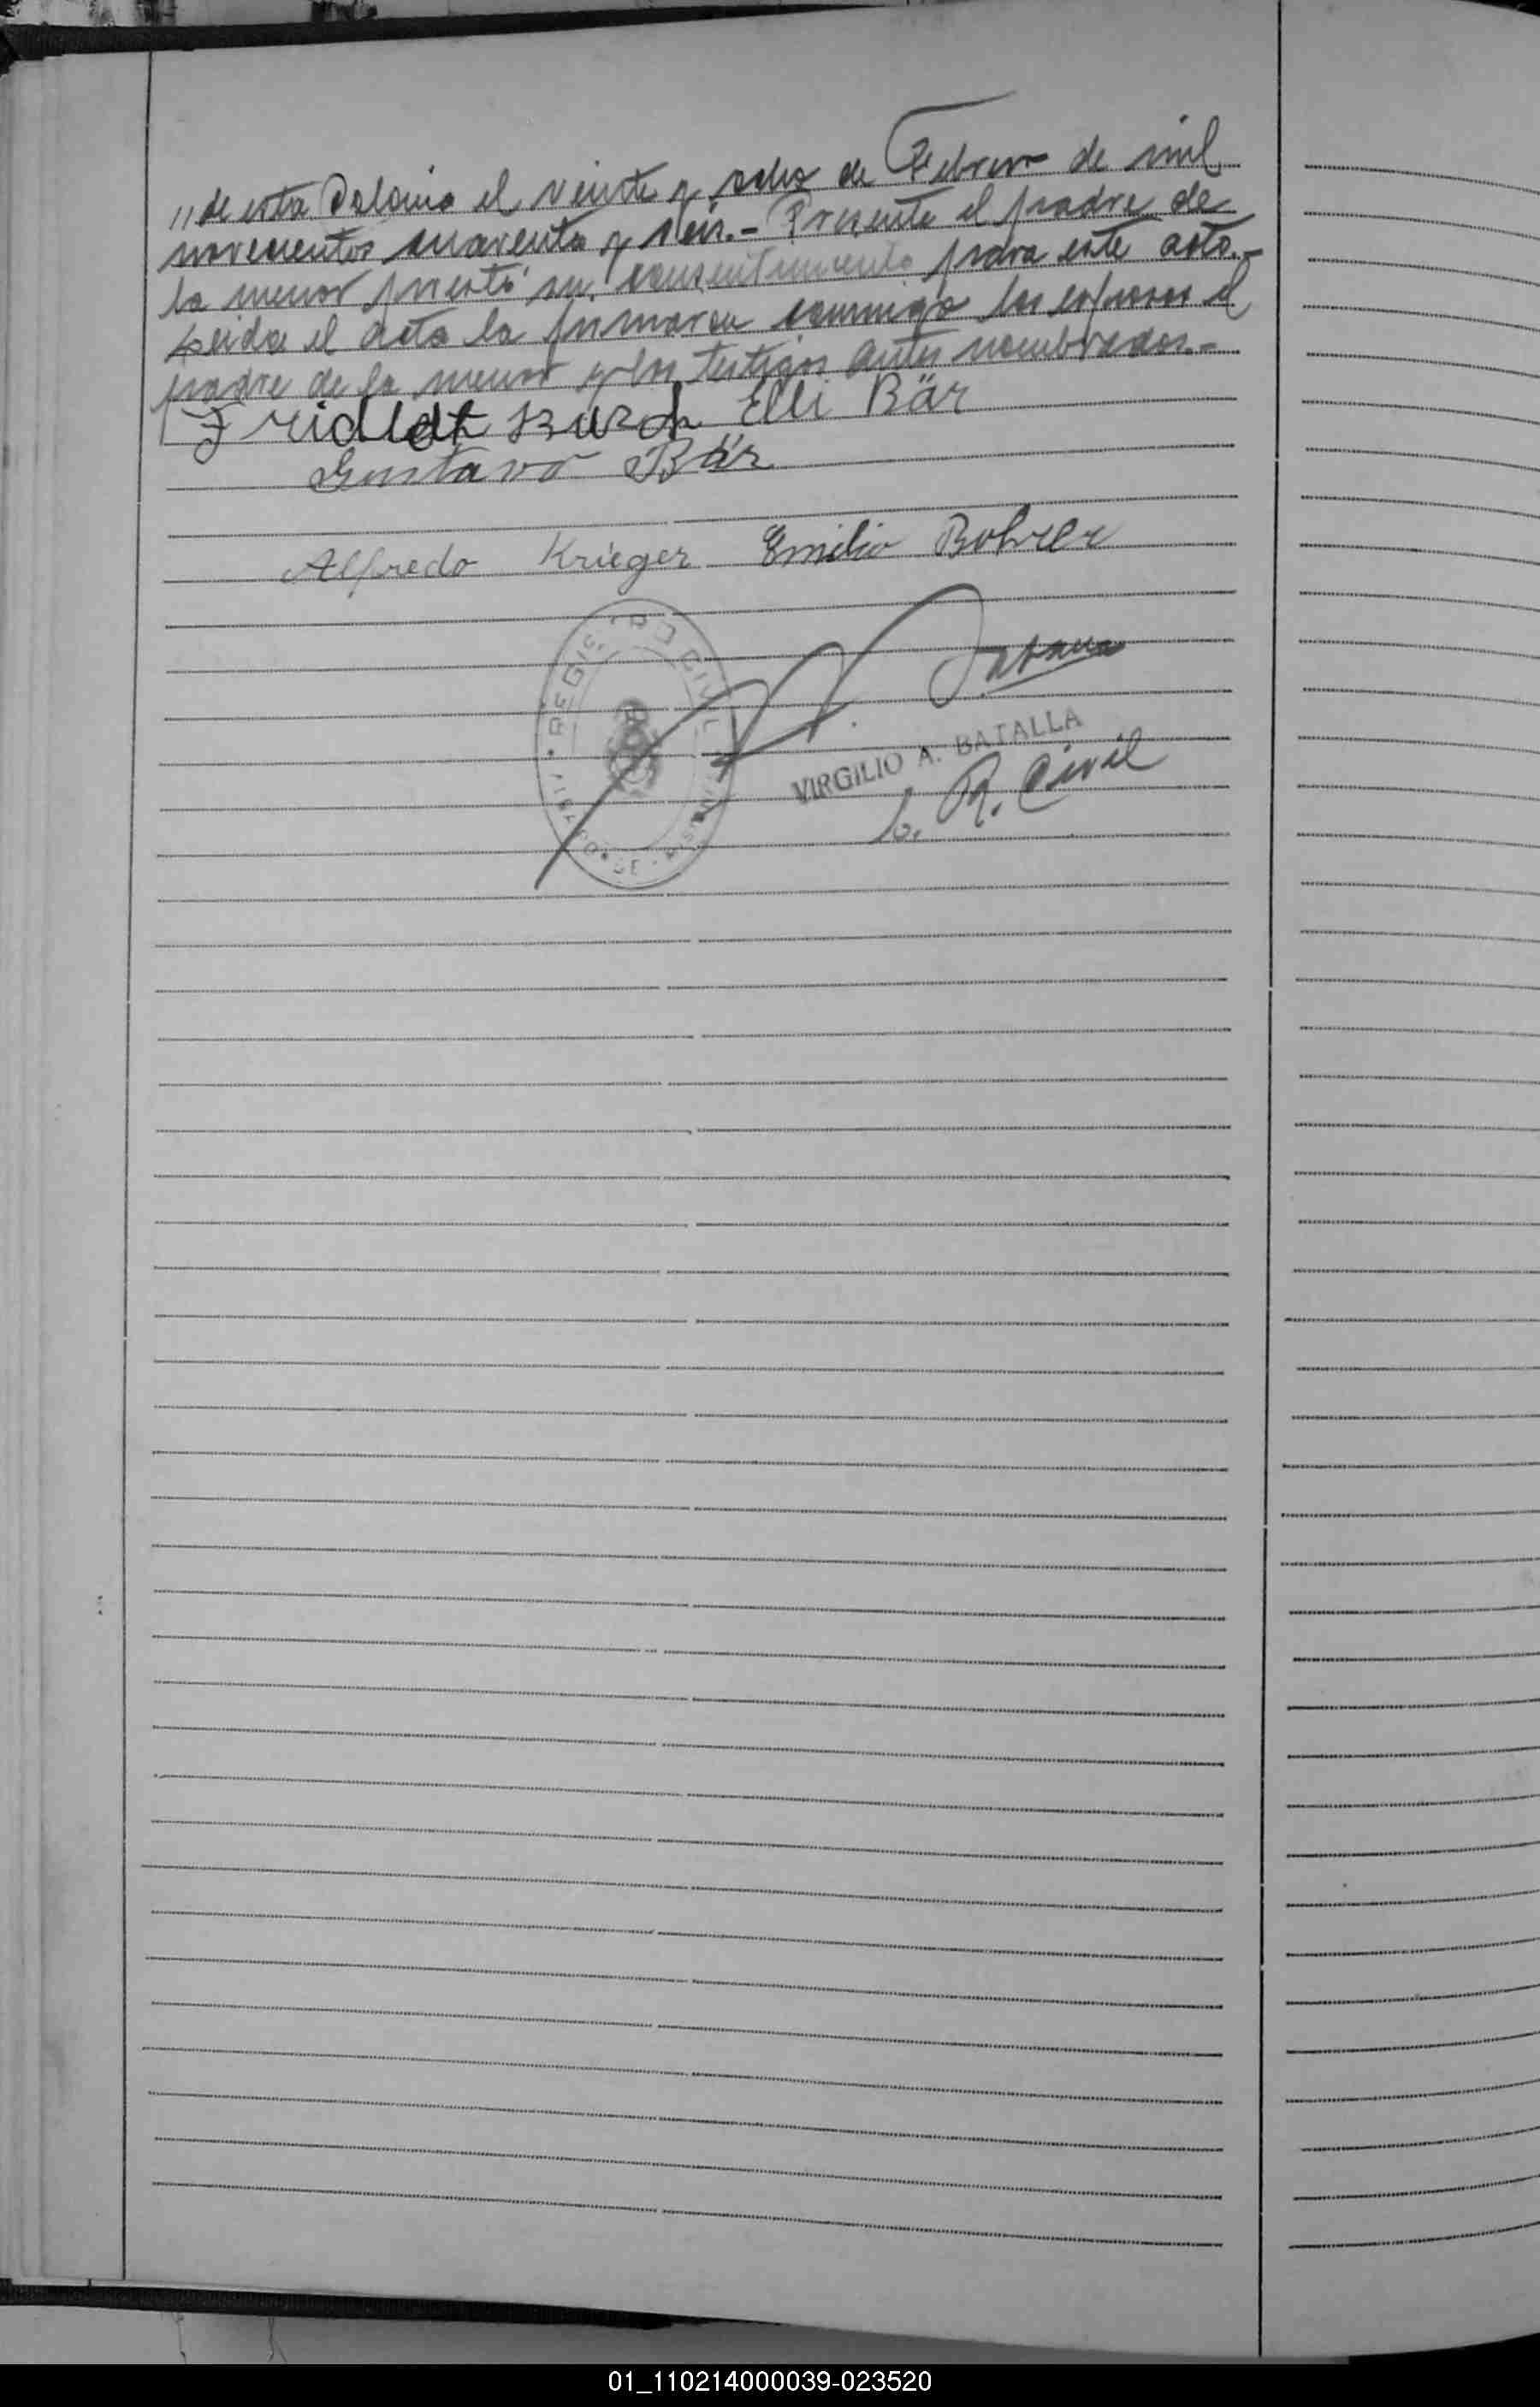 " de esta Colonia el veinte y ocho de Febrero de mil
novecientos cuarenta y seis.- Presente el padre de
la menor prestó su consentimiento para este acto.-
Leida el acta la firmaron conmigo los esposos el
padre de la menor y los testigos antes nombrados.-
Fridlet Busch Elli Bär
Gustavo Bär
Alfredo Krieger Emilio Bohrer
REGISTRO CIVIL
VIRGILIO A. BATALLA
R. Civil
01_110214000039-023520